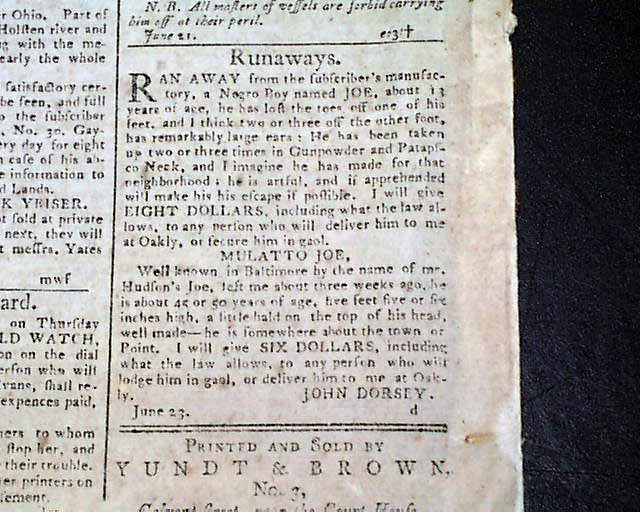 er Ohio. Part of
Holsten river and
g with the me-
early the whole
satisfactory cer-
be seen, and full
o the subscriber
, No. 30, Gay-
ery day for eight
n case of his ab-
e information to
d Lands.
K YEISER.
ot sold at private
next, they will
t messrs. Yates
mwf
ard.
on Thursday
LD WATCH,
on on the dial
erson who will
vans, shall re-
expences paid,
ners to whom
stop her, and
their trouble.
er printers on
isement.
N. B. All masters of vessels are forbid carrying
him off at their peril.
June 21. eo3t†
Runaways.
RAN AWAY from the subscriber's manufac-
tory, a Negro Boy named JOE, about 13
years of age, he has lost the toes off one of his
feet, and I think two or three off the other foot,
has remarkably large ears: He has been taken
up two or three times in Gunpowder and Pataps-
co Neck, and I imagine he has made for that
neighborhood; he is artful, and if apprehended
will make his his escape if possible. I will give
EIGHT DOLLARS, including what the law al-
lows, to any person who will deliver him to me
at Oakly, or secure him in gaol.
MULATTO JOE,
Well known in Baltimore by the name of mr.
Hudson's Joe, left me about three weeks ago, he
is about 45 or 50 years of age, five feet five or six
inches high, a little bald on the top of his head,
well made—he is somewhere about the town or
Point. I will give SIX DOLLARS, including
what the law allows, to any person who will
lodge him in gaol, or deliver him to me at Oak-
ly. JOHN DORSEY.
June 23. d
PRINTED AND SOLD BY
YUNDT & BROWN,
No. 3,
Calvert Street, near the Court House